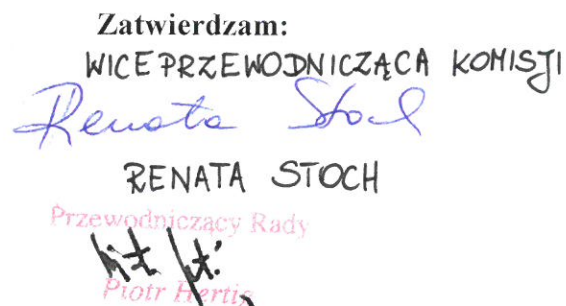 Zatwierdzam:
WICEPRZEWODNICZĄCA KOMISJI
Renata Stoch
RENATA STOCH
Przewodniczący Rady
Piotr Hertig